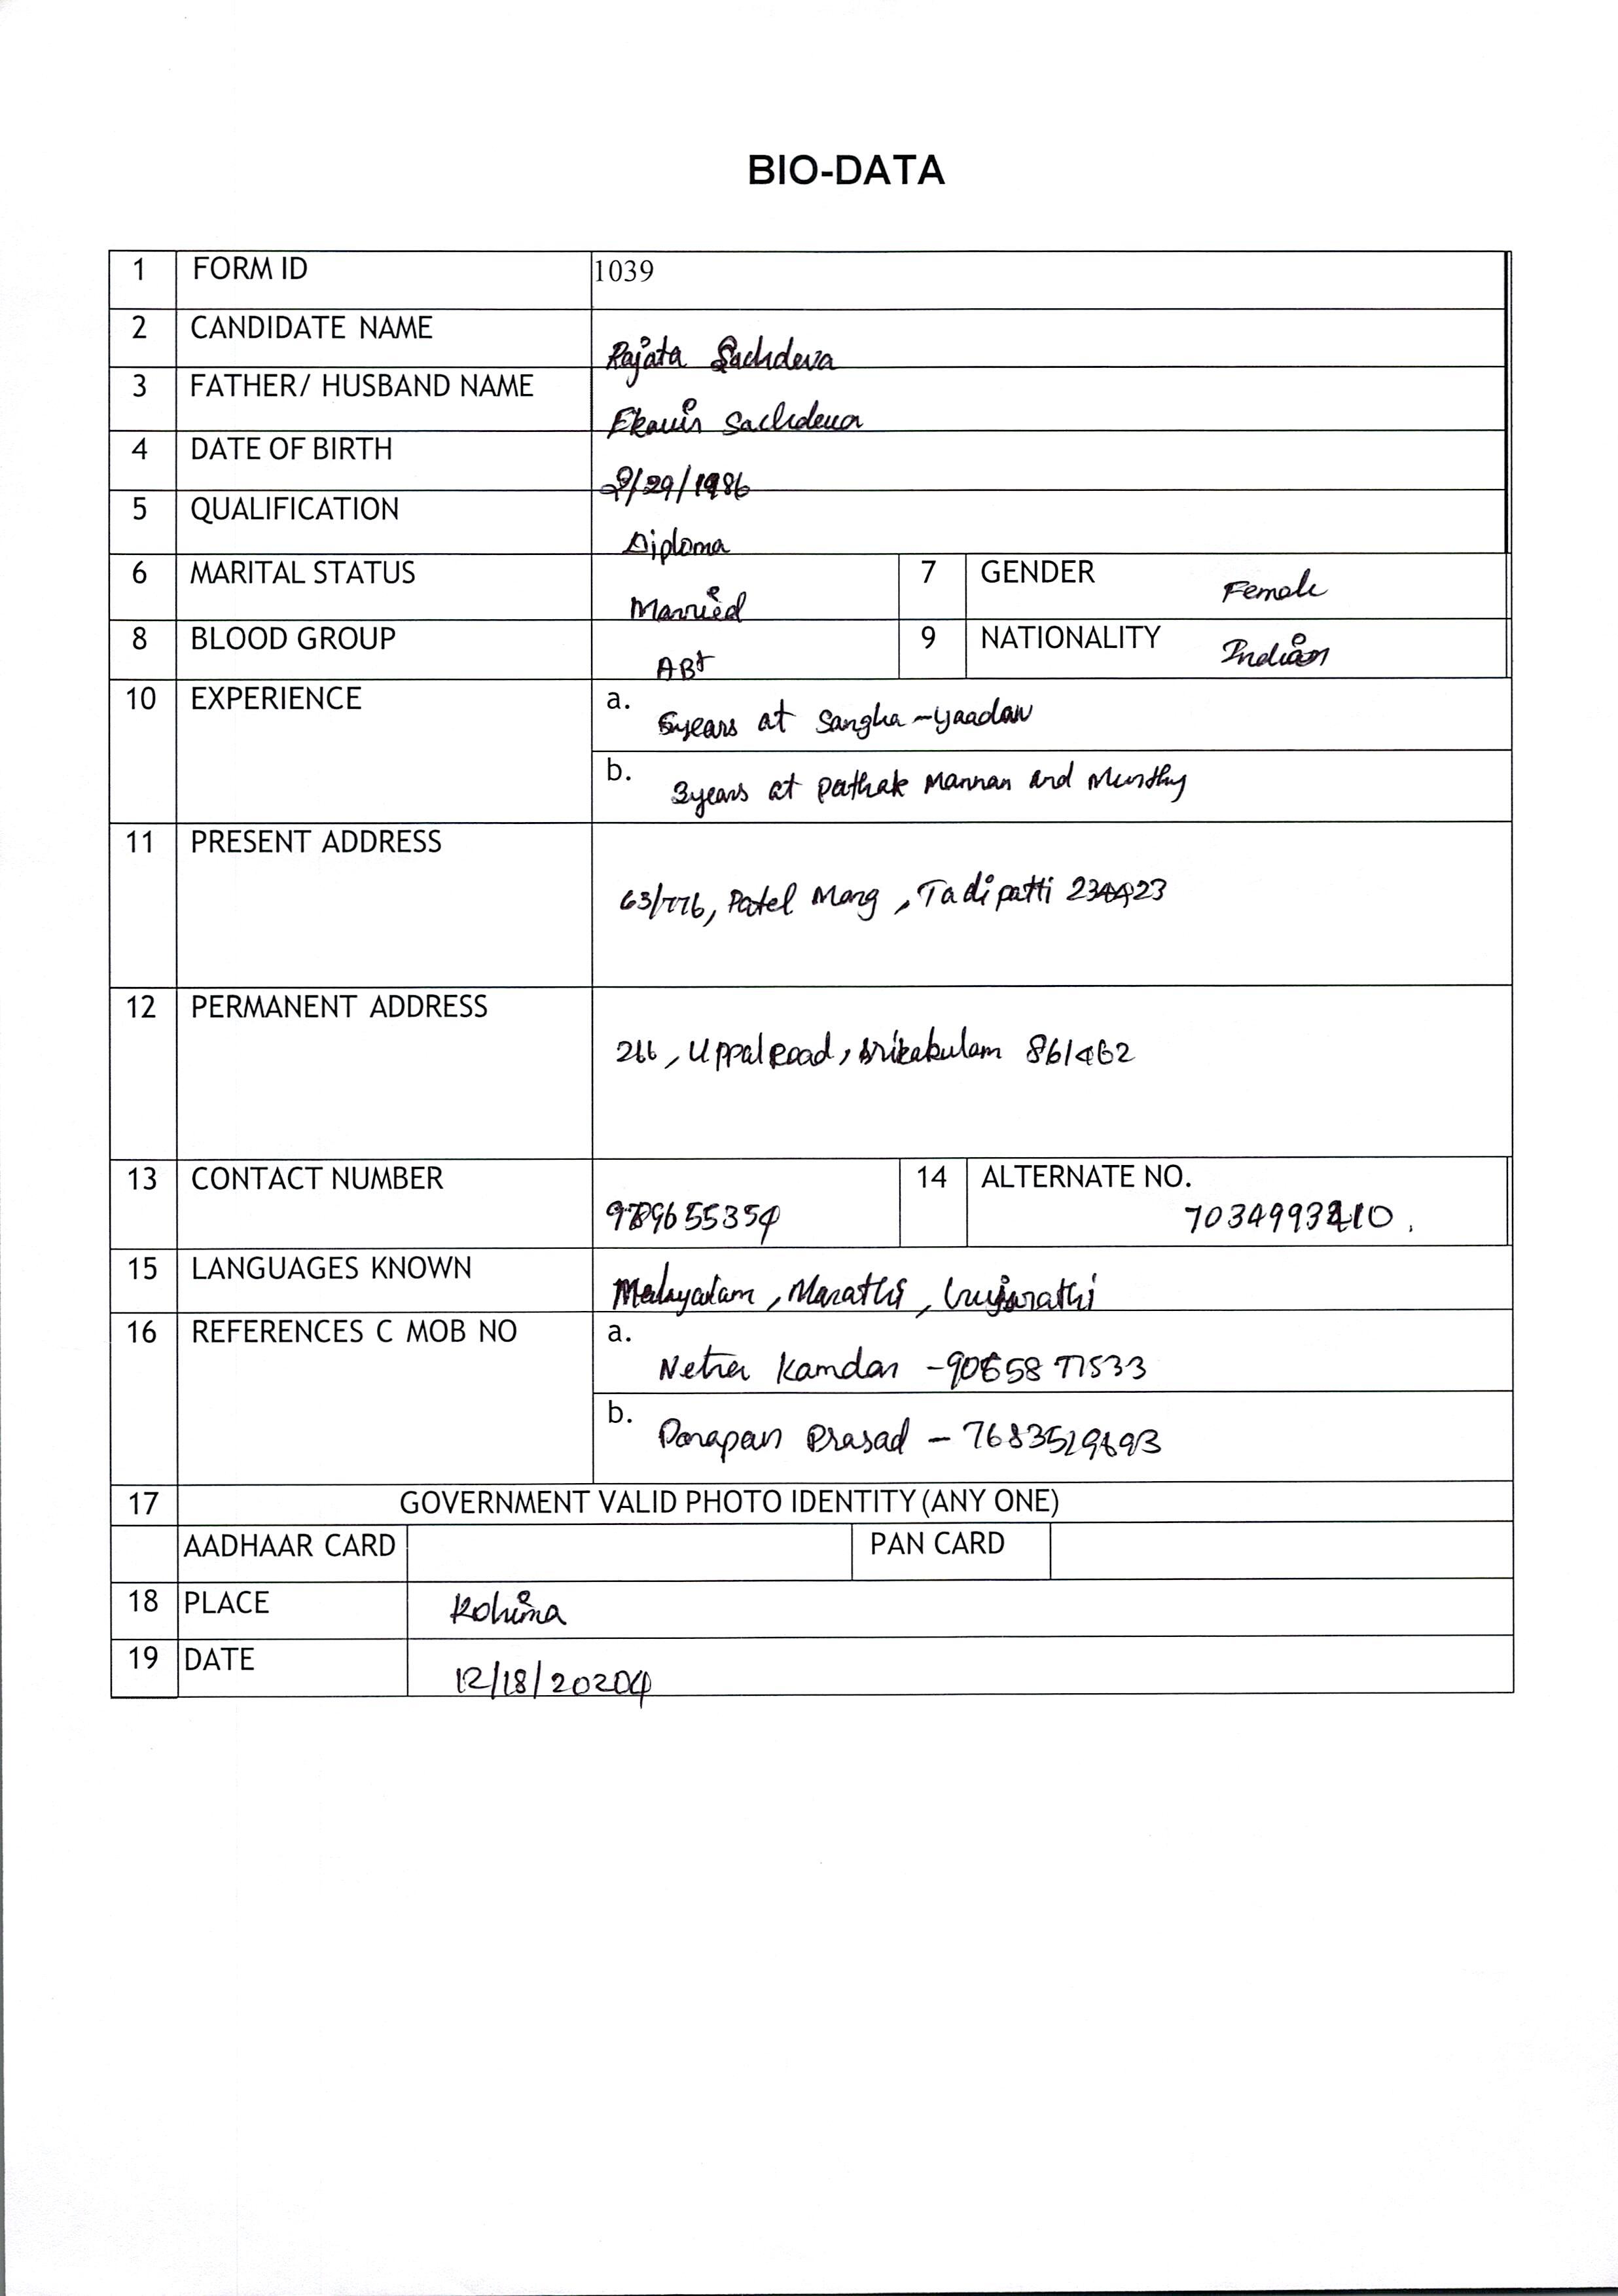 BIO-DATA
1 FORM ID 1039
2 CANDIDATE NAME Rajata Sachdeva
3 FATHER/ HUSBAND NAME Sachdeva
4 DATE OF BIRTH
5 QUALIFICATION Diploma
6 MARITAL STATUS Married 7 GENDER Female
8 BLOOD GROUP AB+ 9 NATIONALITY Indian
10 EXPERIENCE a. 5years at Sangha -yaadav
b. 3years at Pathak Mannan and Murthy
11 PRESENT ADDRESS
63/776, Patel Marg , Tadipatti
12 PERMANENT ADDRESS
266, Uppal Road, Srikakulam 861462
13 CONTACT NUMBER 14 ALTERNATE NO.
9789655354
15 LANGUAGES KNOWN Malayalam , Marathi , Gujarathi
16 REFERENCES C MOB NO a.
Kamdar
b. Prasad -
17 GOVERNMENT VALID PHOTO IDENTITY (ANY ONE)
AADHAAR CARD PAN CARD
18 PLACE Kohima
19 DATE 12/18/20204